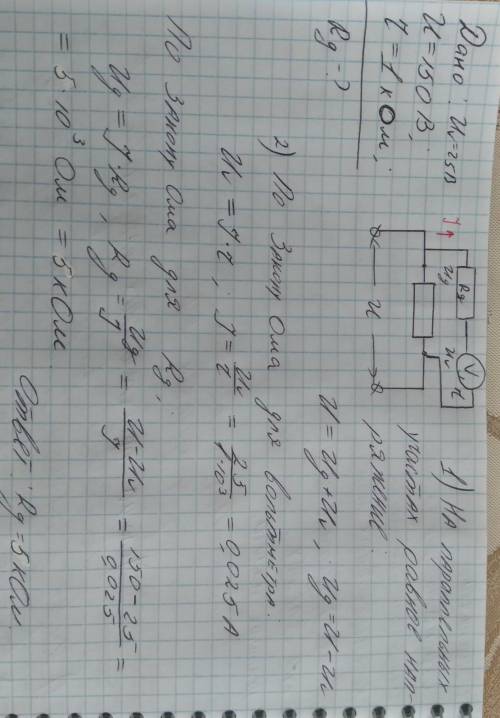 Дано: Uv=25В
U=150 В;
r=1 кОм;
Rg-?
J
Rg
V
r
Ug
Uv
U
1) На параллельных
участках равное нап-
ряжение:
U=Ug+Uv, Ug=U-Uv
2) По Закону Ома для вольтметра:
Uv=J·r, J=Uv/r=25/1·10³=0,025 А
По закону Ома для Rg,
Ug=J·Rg, Rg=Ug/J=U-Uv/J=150-25/0,025=
=5·10³ Ом=5 кОм
Ответ: Rg=5 кОм.